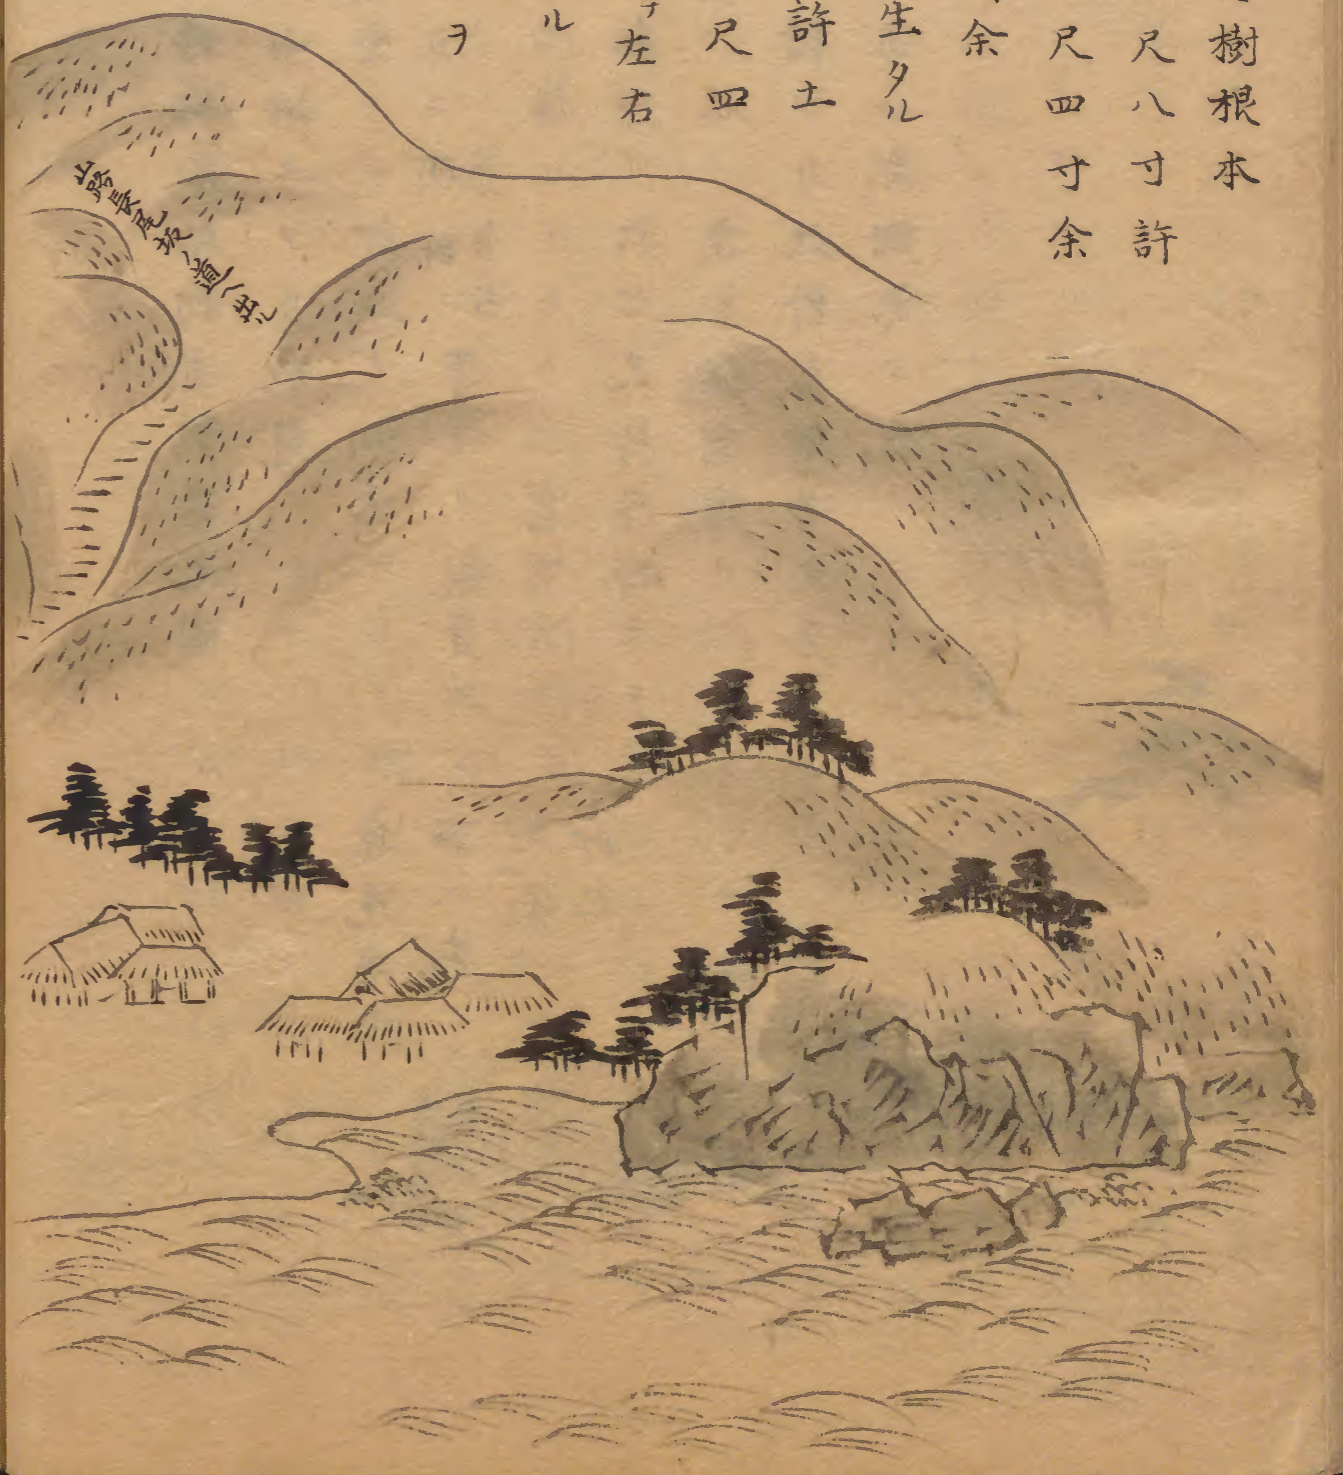 樹根本
尺八寸許
尺四寸余
余
生タル
許土
尺四
左右
ル
ヲ
山路長尾坂ノ道ヘ出ル